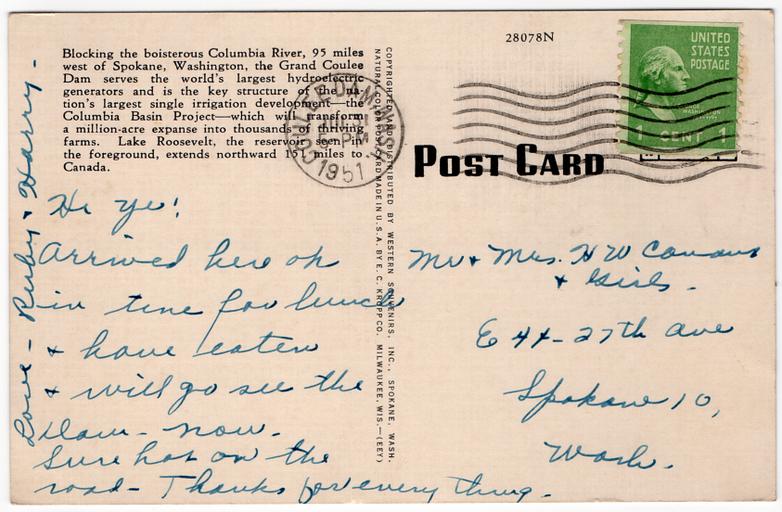 28078N
Blocking the boisterous Columbia River, 95 miles
west of Spokane, Washington, the Grand Coulee
Dam serves the world's largest hydroelectric
generators and is the key structure of the na-
tion's largest single irrigation development—the
Columbia Basin Project—which will transform
a million-acre expanse into thousands of thriving
farms. Lake Roosevelt, the reservoir seen in
the foreground, extends northward 151 miles to
Canada.
COULEE DAM
1951
UNITED
STATES
POSTAGE
1 CENT 1
POST CARD
COPYRIGHTED AND DISTRIBUTED BY WESTERN SOUVENIRS, INC., SPOKANE, WASH.
NATURAL COLOR POST CARD MADE IN U.S.A. BY E. C. KROPP CO. MILWAUKEE, WIS.—(EEY)
Hi Ye!
Arrived here ok
in time for lunch
+ have eaten
+ will go see the
Dam - now.
Sure hot on the
road - Thanks for every thing.
Love - Ruby + Harry -
Mr + Mrs. H W
+ Girls.
E 44 - 27th Ave
Spokane 10,
Wash.